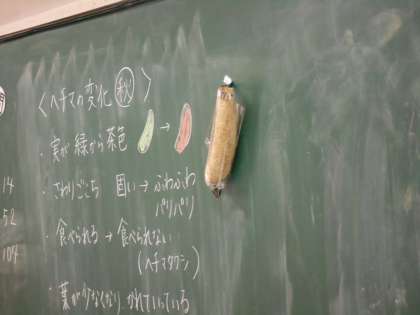 〈ヘチマの変化 秋〉
・実が緑から茶色
→
・さわりごこち 固い→ふわふわ
パリパリ
・食べられる→食べられない
(ヘチマタワシ)
・葉が少なくなり、かれていっている
月
14
52
104